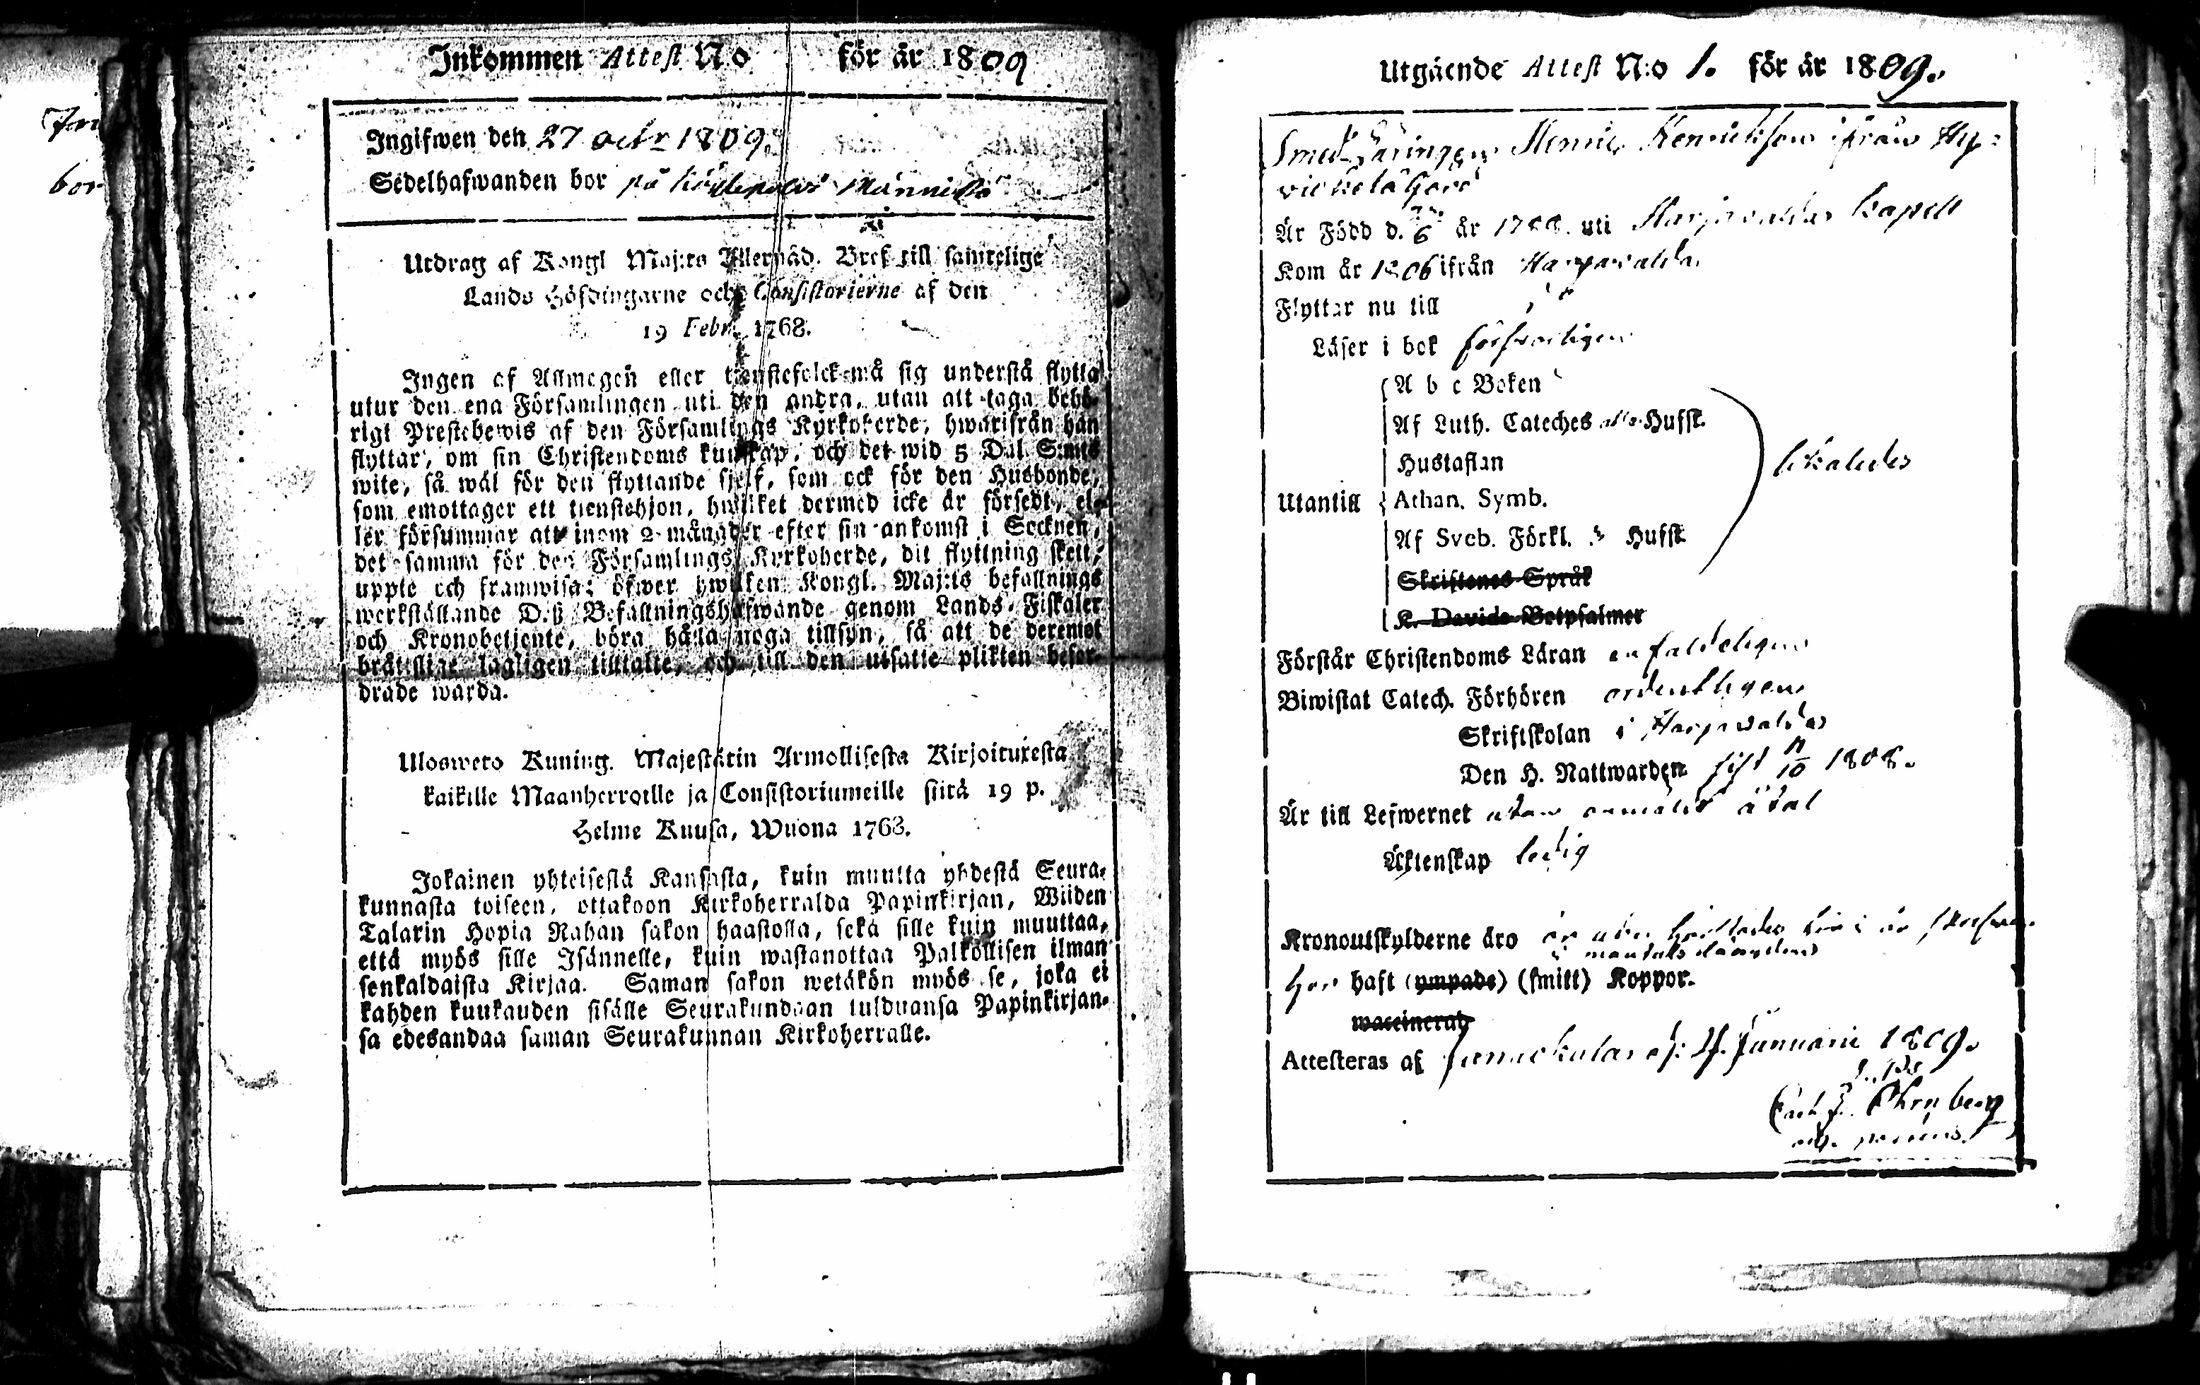 Inkommen Attest No för år 1809
Ingifwen den 27 octr 1809.
Sedelhafwanden bor på
Utdrag af Kongl Maj:ts Allernåd. Bref till samtelige
Lands Höfdingarne och Consistorierne af den
19 Febr. 1768.
Ingen af Allmogen eller tjenstefolck må sig understå flytta
utur den ena Församlingen uti den andra, utan att taga behö-
rigt Prestebewis af den Församlings Kyrkoherde, hwarifrån han
flyttar, om sin Christendoms kunskap, och det wid 5 Dal. S:mts
wite, så wäl för den flyttande sjelf, som ock för den Husbonde,
som emottager ett tienstehjon, hwilket dermed icke är försedt, el-
ler försummar att inom 2 månader efter sin ankomst i Socknen,
det samma för den Församlings Kyrkoherde, dit flyttning skett,
uppte och framwisa; öfwer hwilken Kongl. Maj:ts befallnings
werkställande Deß Befallningshafwande genom Lands Fiskaler
och Kronobetjente, böra hålla noga tillsyn, få att de deremot
brätslige lagligen tilltalte, och till den utsatte plikten befor-
drade warda.
Ulosweto Kuning. Majestätin Armollisesta Kirjoituxesta
kaikille Maanherroille ja Consistoriumeille siitä 19 p.
Helme Kuusa, Wuona 1768.
Jokainen yhteisestä Kansasta, kuin muutta yhdestä Seura-
kunnasta toiseen, ottakoon Kirkoherralda Papinkirjan, Wiiden
Talarin Hopia Rahan sakon haastolla, sekä sille kuin muuttaa,
että myös sille Isännelle, kuin wastanottaa Palkollisen ilman
senkaldaista Kirjaa. Saman sakon wetäkön myös se, joka ei
kahden kuukauden sisälle Seurakundaan tulduansa Papinkirjan-
sa edesandaa saman Seurakunnan Kirkoherralle.
Utgående Attest N:o 1. för år 1809.
Henric Henricksson ifrån
Är Född d. 6 år uti Harjavalda Capell
Kom år 1806 ifrån Harjavalda
Flyttar nu till
Läser i bok försvarligen
A b c Boken
Af Luth. Cateches alla Hufst.
Hustaflan
likaledes
Utantill Athan. Symb.
Af Sveb. Förkl. 3 Hufst.
Skriftenes Språk
K. Davids Botpsalmer
Förstår Christendoms Läran enfaldeligen
Biwistat Catech. Förhören ordentligen
Skriftskolan i Harjavalda
Den H. Nattwarden sist 1808.
Är till Lefwernet utan anmält åtal
Äktenskap ledig
Kronoutskylderne äro
Har haft (ympade) (smitt) Koppor.
waccinerad
Attesteras af Januarii 1809.